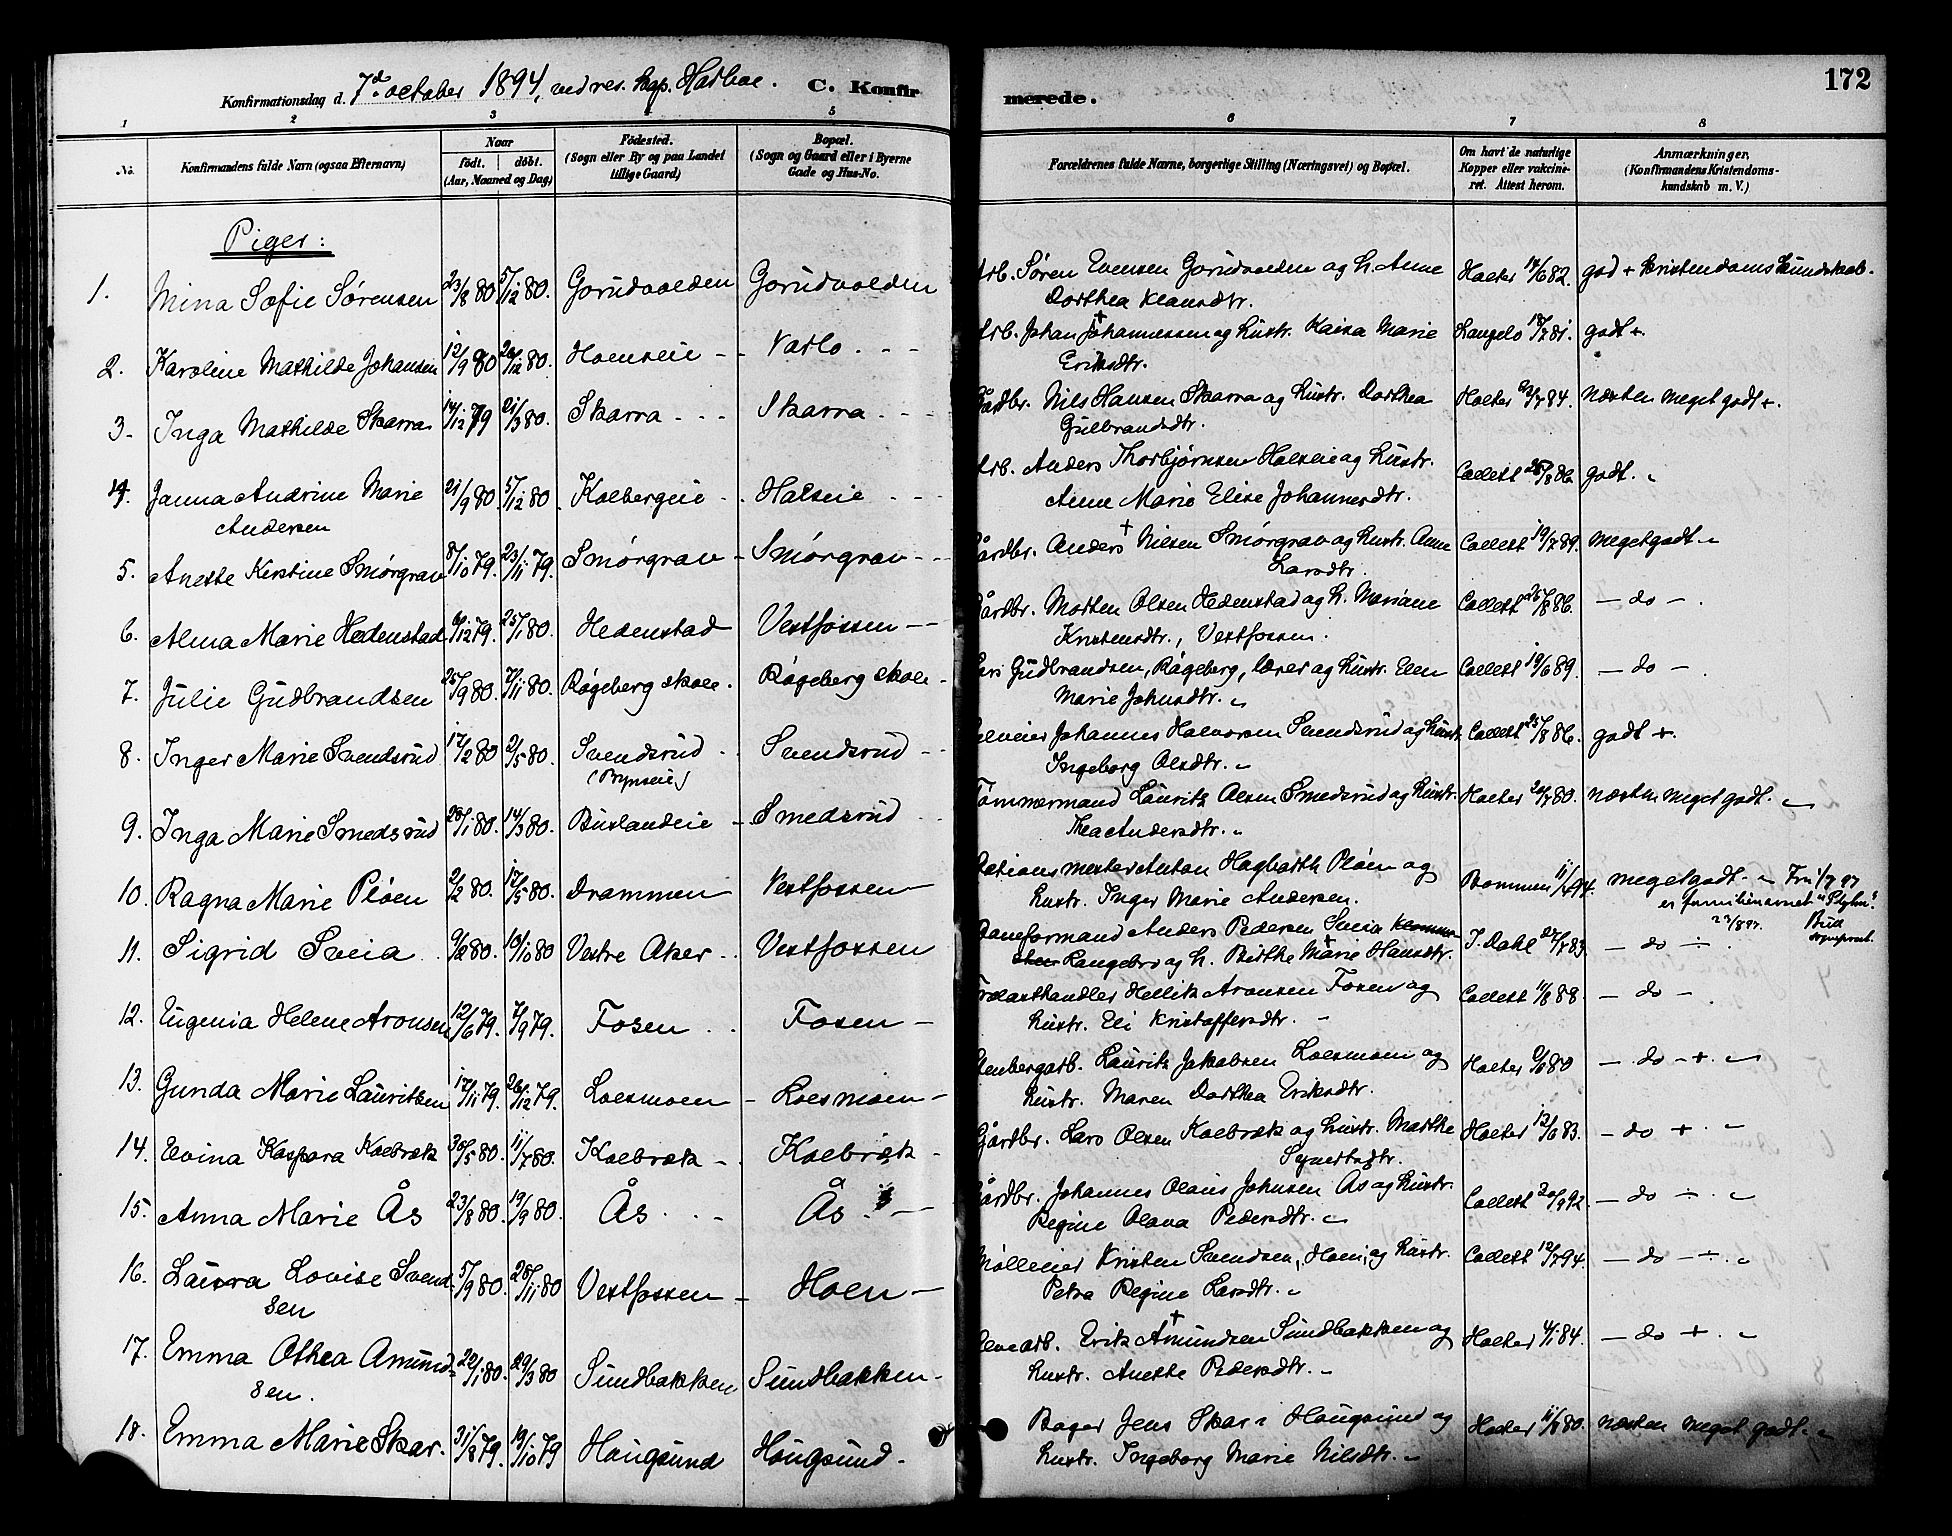 172
Konfirmationsdag d. 7de october 1894, ved res. kap.
C. Konfirmerede.
1 2 3 4 5 6 7 8
No. Konfirmandens fulde Navn (ogsaa Efternavn) Naar födt. döbt. (Aar, Maaned og Dag) Födested. (Sogn eller By og paa Landet tillige Gaard) Bopæl. (Sogn og Gaard eller i Byerne Gade og Hus-No. Forældrenes fulde Navne, borgerlige Stilling (Næringsvei) og Bopæl. Om havt de naturlige Kopper eller vakcineret. Attest herom. Anmærkninger, (Konfirmandens Kristendomskundskab m. V.)
Piger:
1. Mina Sofie Sørensen 23/8 80 5/12 80. Gorudvolden Gorudvolden Arb. Søren Evensen Gorudvolden og h. Anne Holter 14/6 82. god + kristendomskundskab.
Dorthea Klausdtr.
2. Karoline Mathilde Johansen 12/9 80 26/12 80. Hoenseie Varlo Arb. Johan + Johannessen og hustr. Kaisa Marie Langelo 18/7 81. godt +
Eriksdtr.
3. Inga Mathilde Skarra 14/12 79 21/3 80. Skarra Skarra Gårdbr. Nils Hansen Skarra og hustr. Dorthea Holter 84. næsten meget godt +.
Gulbrandsdtr.
4. Janna Andrine Marie 21/9 80. 5/12 80. Kolbergeie Halseie Arb. Anders Thorbjørnsen Halseie og hustr. Collett 25/8 86 godt. "
Andersen Anne Marie Elise Johannesdtr.
5. Anette Kirstine Smörgrav 8/10 79. 23/11 79. Smörgrav Smörgrav Gårdbr. Anders + Nilsen Smörgrav og hustr. Anne Collett 19/7 89. meget godt "
Larsdtr.
6. Alma Marie Hedenstad 6/12 79. 25/1 80. Hedenstad Vestfossen Gårdbr. Morten Olsen Hedenstad og h. Mariane Collett 25/8 86. — do —.
Kristensdtr., Vestfossen.
7. Julie Gudbrandsen 25/9 80. 7/11 80. Rögeberg skole. Rögeberg skole Gudbrandsen, Rögeberg, lærer og hustr. Elen Collett 19/6 89. — do —
Marie Johnsdtr. "
8. Inger Marie Svendsrud 17/2 80 2/5 80. Svendsrud Svendsrud Selveier Johannes Halvorsen Svendsrud og hustr. Collett 25/8 86. godt +.
Ingeborg Olsdtr. "
9. Inga Marie Smedsrud 28/1 80. 14/3 80. Buslandeie Smedsrud Tömmermand Lauritz Olsen Smedsrud og hustr. Holter 80. næsten meget godt. "
Thea Andersdtr. "
10. Ragna Marie Plöen 2/2 80. 17/5 80. Drammen Vestfossen Stationsmester Anton Hagbarth Plöen og 94. meget godt. "
hustr. Inger Marie Andersen.
11. Sigrid Sveia 9/2 80. 10/10 80 Vestre Aker Vestfossen Baneformand Anders Pedersen Sveia J. Dahl 83. — do ÷
Langebro og h. Birthe + Marie Hansdtr.
12. Eugenia Helene Aronsen 12/6 79. 7/9 79. Fosen Fosen Trælasthandler Hellik Aronsen Fosen og Collett 11/8 88. — do —.
hustr. Eli Kristoffersdtr. "
13. Gunda Marie Lauritsen 17/11 79. 26/12 79. Loesmoen Loesmoen Lauritz Jakobsen Loesmoen og Holter 80 — do — +. "
hustr. Maren Dorthea Eriksdtr.
14. Evina Kaspara Kolbræk 30/5 80. 11/7 80. Kolbræk Kolbræk Gårdbr. Lars Olsen Kolbræk og hustr. Marthe Holter 12/6 83. — do +. "
15. Anna Marie Ås 23/8 80. 19/9 80. Ås Ås Gårdbr. Johannes Olaus Johnsen Ås og hustr. Collett 92. — do ÷. "
Regine Olava Pedersdtr. "
16. Laura Lovise Svend- 5/9 80. 28/11 80 Vestfossen Hoen Mölleeier Kristen Svendsen, Hoen, og hustr. Collett 12/7 94. — do — ÷. "
sen Petra Regine Larsdtr. "
17. Emma Othea Amund- 22/1 80. 29/3 80 Sundbakken Sundbakken Erik + Amundsen Sundbakken og Holter 4/1 84. — do +. "
sen. hustr. Anette Pedersdtr. "
18. Emma Marie Skar. 31/8 79. 19/10 79 Hougsund Hougsund Bager Jens Skar i Hougsund og Holter 80. næsten meget godt. "
hustr. Ingeborg Marie Nilsdtr. "